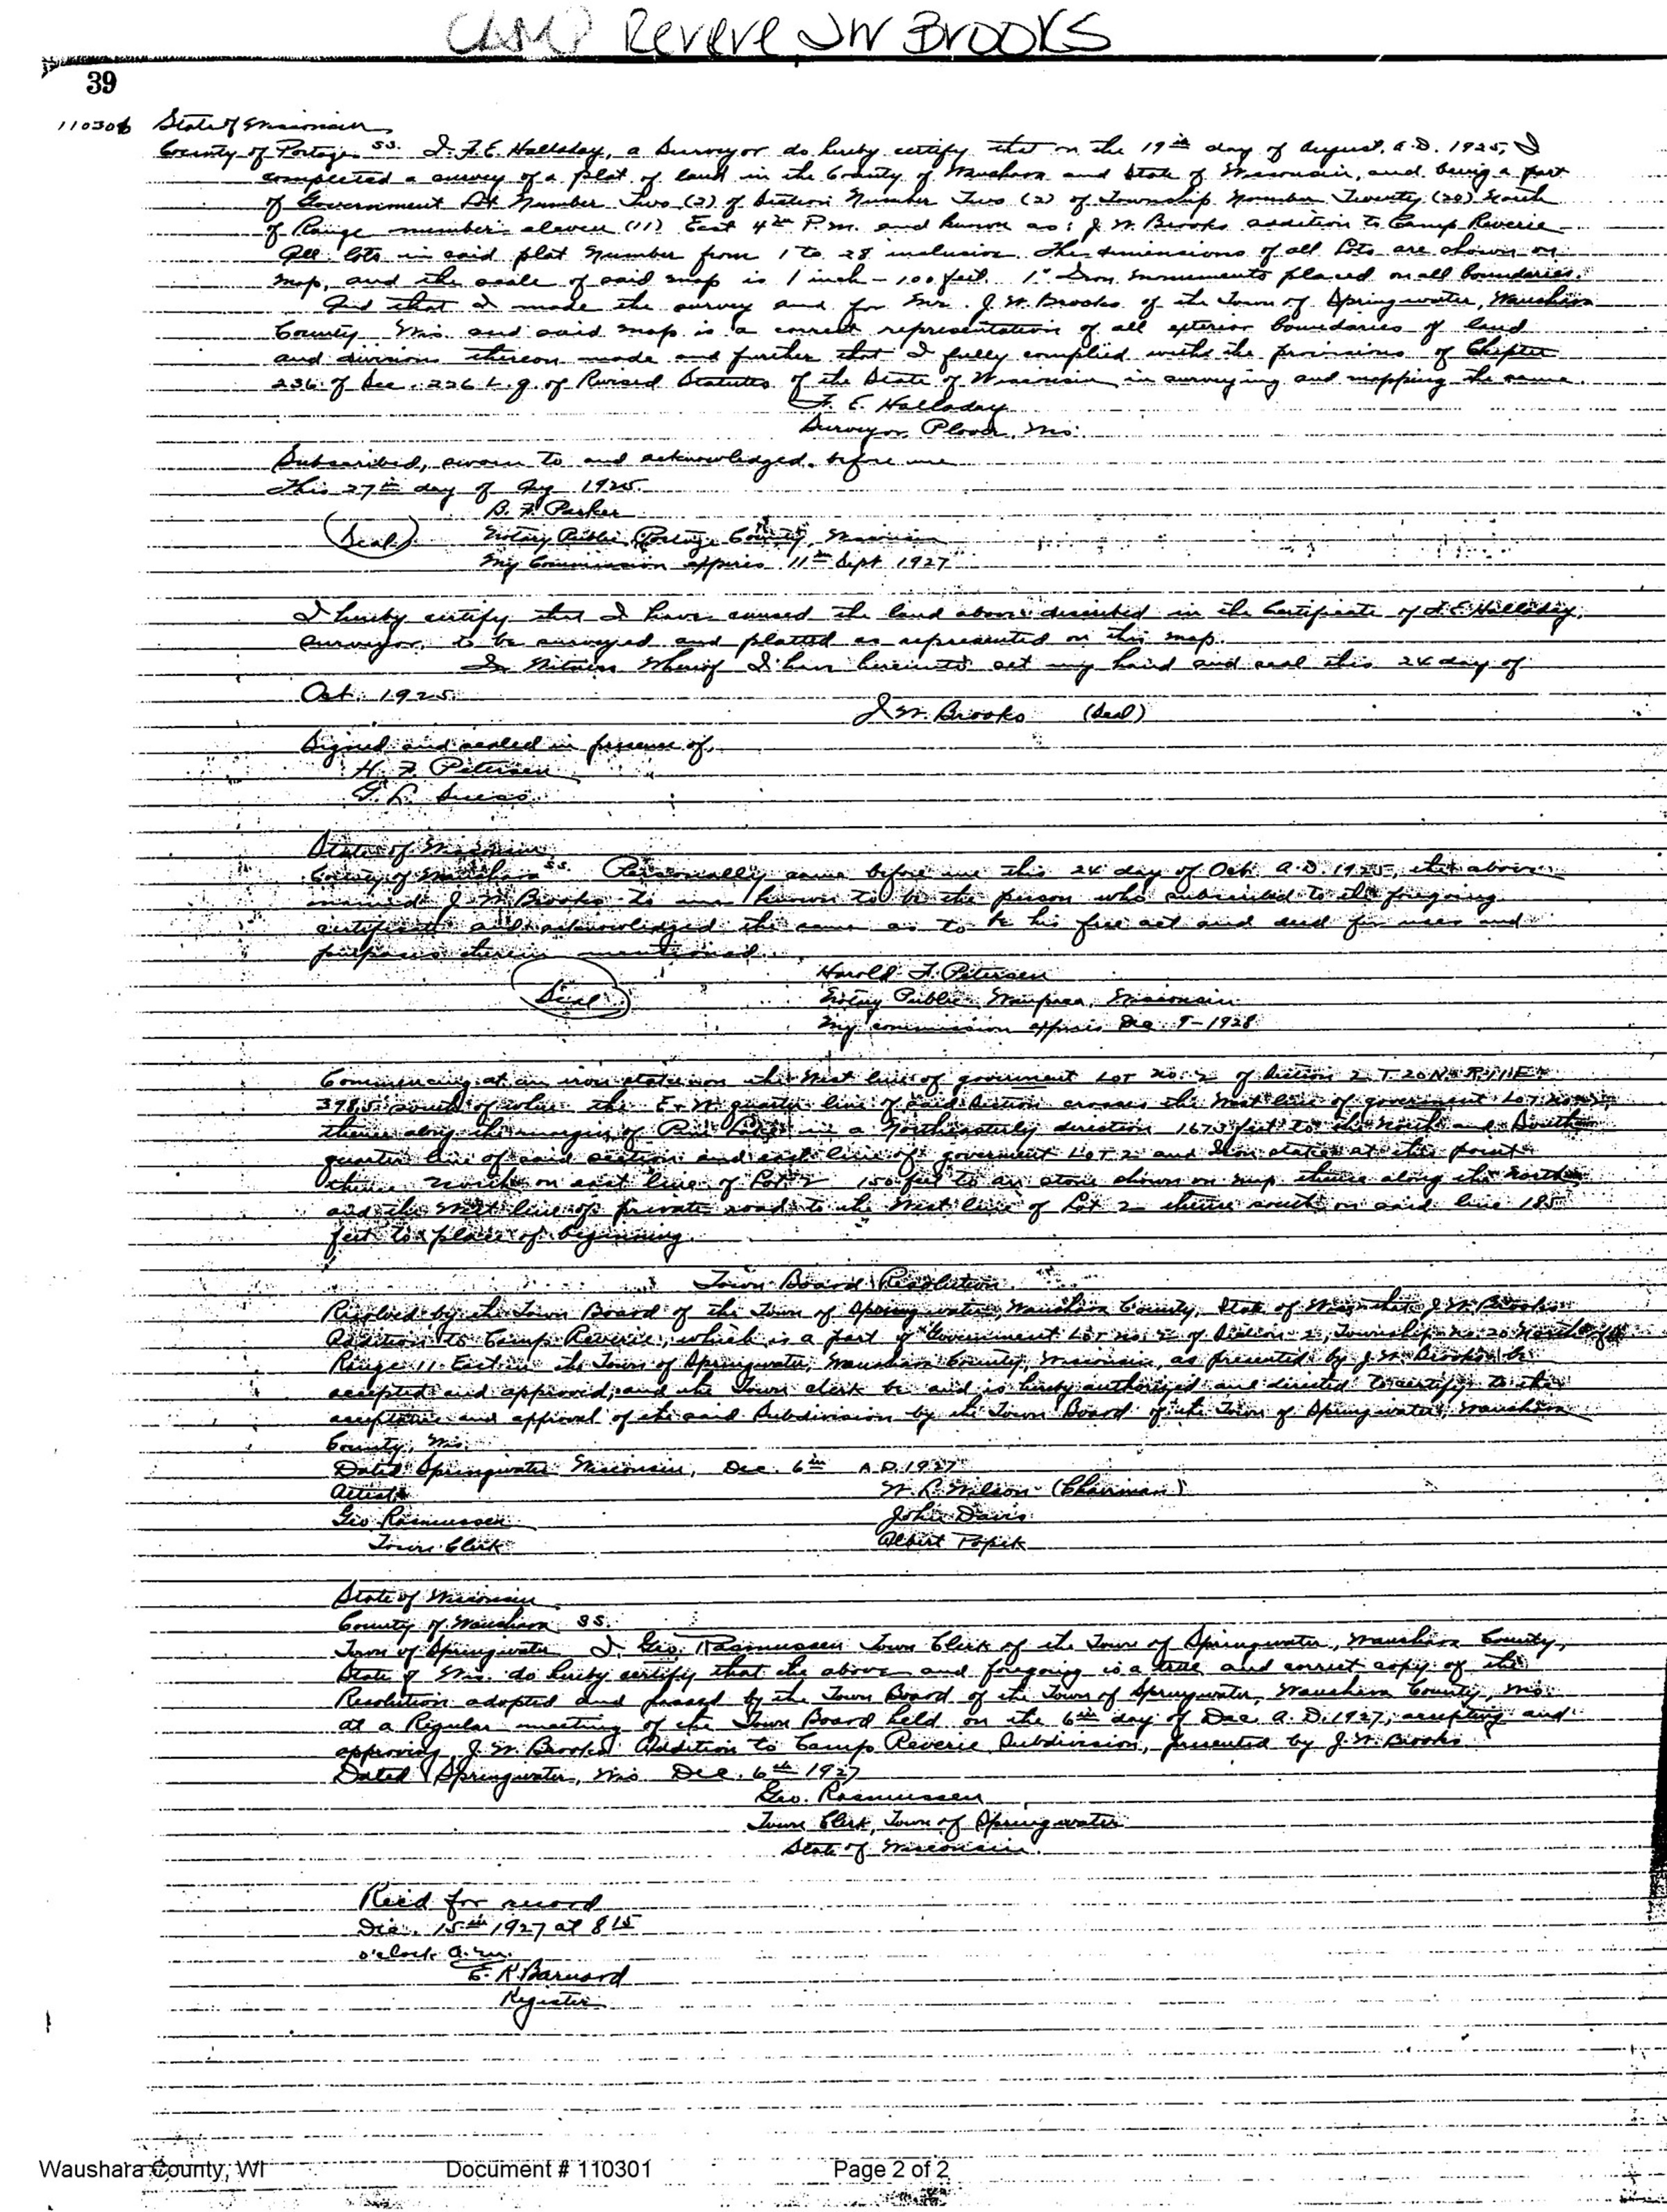 CAMP Revere JW BROOKS
39
110306 State of Wisconsin
County of Portage ss. I. F. E. Halladay, a Surveyor do hereby certify that on the 19th day of August, A.D. 1925, I
completed a survey of a plat of land in the County of Waushara and State of Wisconsin, and being a part
of Government Lot Number Two (2) of Section Number Two (2) of Township Number Twenty (20) North
of Range number eleven (11) East 4th P.M. and known as: J. W. Brooks addition to Camp Reverie
All lots in said plat number from 1 to 28 inclusive. The dimensions of all lots are shown on
map, and the scale of said map is 1 inch - 100 feet. 1" Iron monuments placed on all boundaries.
And that I made the survey and for Mr. J. W. Brooks of the Town of Springwater, Waushara
County Wis. and said map is a correct representation of all exterior boundaries of land
and divisions thereon made and further that I fully complied with the provisions of Chapter
236 of Sec. 226 of Revised Statutes of the State of Wisconsin in surveying and mapping the same.
F. E. Halladay
Surveyor Plover, Wis.
Subscribed, sworn to and acknowledged before me
This 27th day of Aug 1925.
B. F. Parker
(Seal) Notary Public, Portage County, Wisconsin
My Commission expires 11th Sept 1927
I hereby certify that I have caused the land above described in the Certificate of F. E. Halladay,
surveyor, to be surveyed and platted as represented on this map.
In Witness Whereof I have hereunto set my hand and seal this 24 day of
Oct. 1925.
J. W. Brooks (Seal)
Signed and sealed in presence of,
H. F. Petersen
State of Wisconsin
County of Waushara ss. Personally came before me this 24 day of Oct. A.D. 1925, the above
named J. W. Brooks to me known to be the person who subscribed to the foregoing
certificate and acknowledged the same as to be his free act and deed for uses and
purposes therein mentioned.
Harold F. Petersen
(Seal) Notary Public, Waupaca, Wisconsin
My commission expires Dec 9-1928
Commencing at an iron stake on the West line of government Lot no. 2 of Section 2 T 20 N. R 11 E
south of where the E & W quarter line of said Section crosses the West line of government Lot no. 2,
thence along the margin of Pine Lake in a Northeasterly direction 1673 feet to the North and South
quarter line of said section and east line of government Lot 2 and Iron stake at this point
thence North on east line of Lot 2 150 feet to an stone shown on map thence along the North
and the West line of private road to the West line of Lot 2 thence south on said line 185
feet to place of beginning.
Town Board Resolution
Resolved by the Town Board of the Town of Springwater, Waushara County, State of Wis. that J. W. Brooks
Addition to Camp Reverie, which is a part of Government Lot no. 2 of Section 2, Township no. 20 North of
Range 11 East in the Town of Springwater, Waushara County, Wisconsin, as presented by J. W. Brooks be
accepted and approved, and the Town clerk be and is hereby authorized and directed to certify to the
acceptance and approval of the said Subdivision by the Town Board of the Town of Springwater, Waushara
County, Wis.
Dated Springwater Wisconsin, Dec. 6th A.D. 1927
Attest W. R. Wilson (Chairman)
Geo Rasmussen John Davis
Town Clerk Albert Popik
State of Wisconsin
County of Waushara SS.
Town of Springwater I. Geo. Rasmussen Town Clerk of the Town of Springwater, Waushara County,
State of Wis. do hereby certify that the above and foregoing is a true and correct copy of the
Resolution adopted and passed by the Town Board of the Town of Springwater, Waushara County, Wis.
at a Regular meeting of the Town Board held on the 6th day of Dec. A.D. 1927, accepting and
approving J. W. Brooks Addition to Camp Reverie Subdivision, presented by J. W. Brooks
Dated Springwater, Wis Dec. 6th 1927
Geo. Rasmussen
Town Clerk, Town of Springwater
State of Wisconsin.
Rec'd for record
Dec. 15th 1927 at 8 15
o'clock a.m.
E. R. Barnard
Register
Waushara County, WI Document # 110301 Page 2 of 2